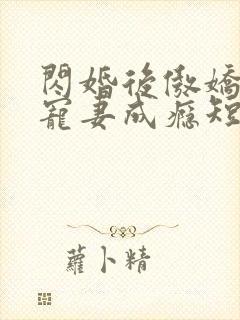 閃婚後傲嬌
寵妻成癮短
蘿卜精